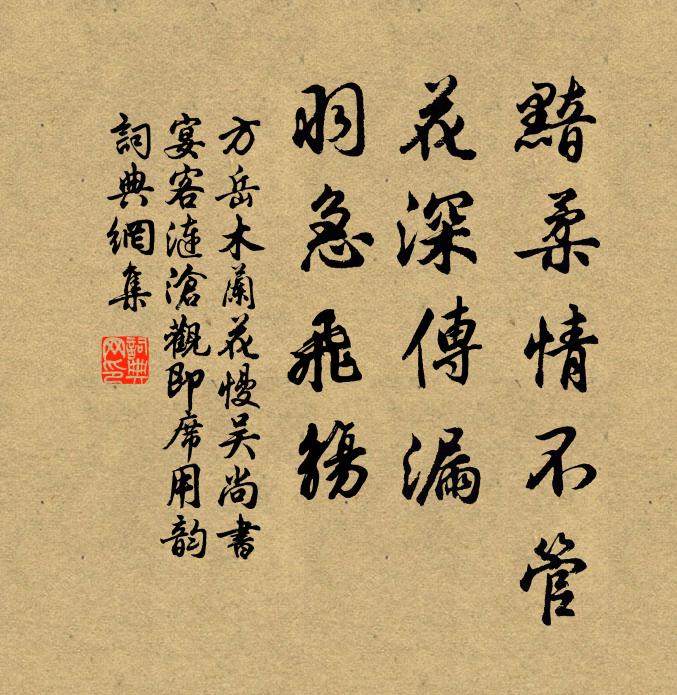 黯柔情不管
花深傳漏
羽急飛觴
方岳木蘭花慢吴尚書
宴客漣滄觀即席用韵
詞典網集
詞典網印